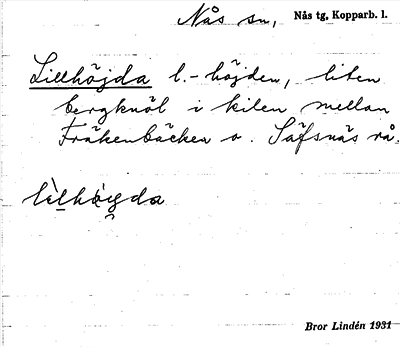 Nås sn, Nås tg, Kopparb. l.
Lillhöjda l. -höjden, liten
bergknöl i kilen mellan
Fräkenbäcken o. Säfsnäs rå.
Bror Lindén 1931